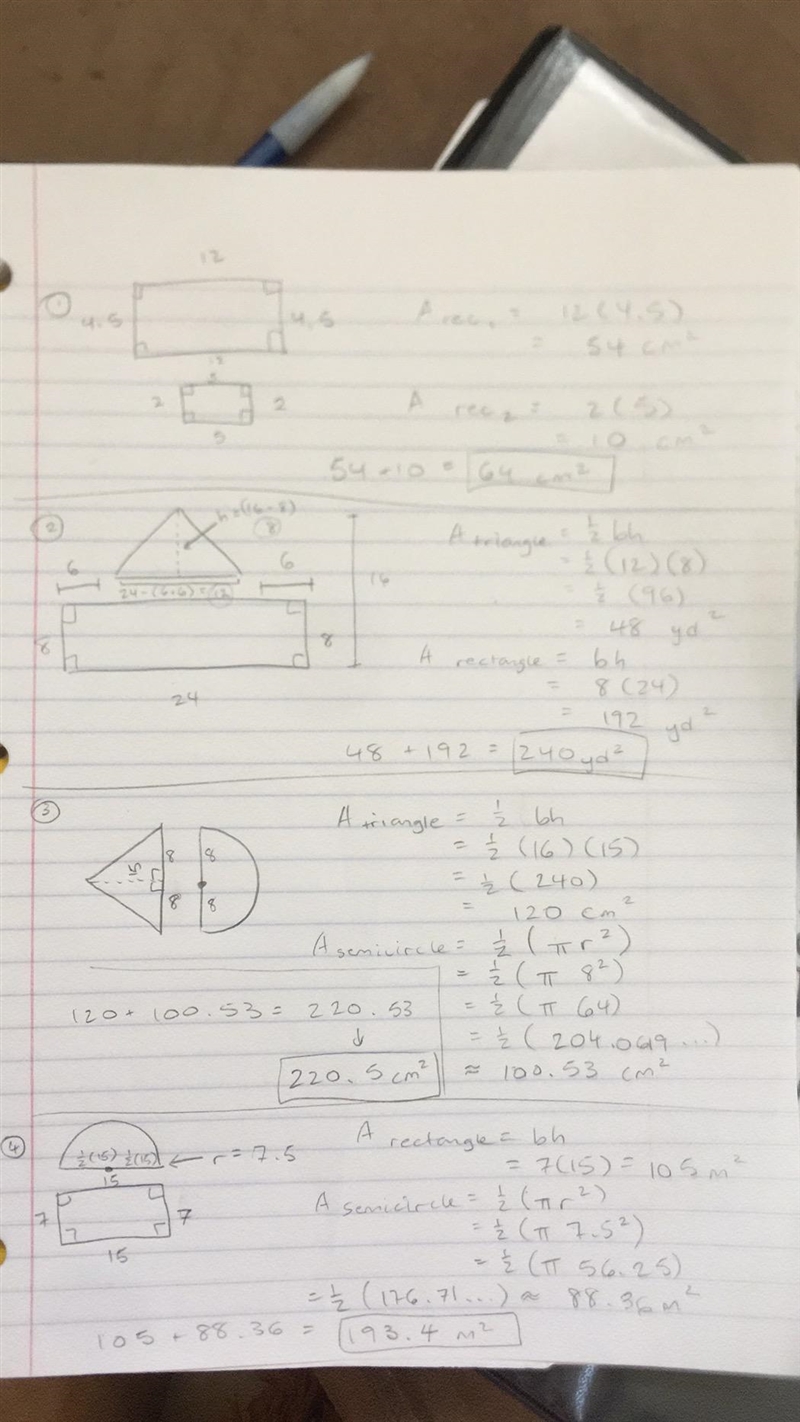 ①
12
4.5
4.5
12
A rec. = 12(4.5)
= 54 cm²
5
2
2
5
A rec₂ = 2(5)
= 10 cm²
54 + 10 = 64 cm²
②
h=(16-8)
8
6
6
24-(6+6)=12
16
8
8
24
A triangle = ½ bh
= ½ (12)(8)
= ½ (96)
= 48 yd²
A rectangle = bh
= 8(24)
= 192 yd²
48 + 192 = 240 yd²
③
15
8
8
8
8
A triangle = ½ bh
= ½ (16)(15)
= ½ (240)
= 120 cm²
A semicircle = ½ (πr²)
= ½ (π 8²)
= ½ (π 64)
= ½ (204.069...)
≈ 100.53 cm²
120 + 100.53 = 220.53
↓
220.5 cm²
④
½(15) ½(15) ← r = 7.5
15
7
7
15
A rectangle = bh
= 7(15) = 105 m²
A semicircle = ½ (πr²)
= ½ (π 7.5²)
= ½ (π 56.25)
= ½ (176.71...) ≈ 88.36 m²
105 + 88.36 = 193.4 m²